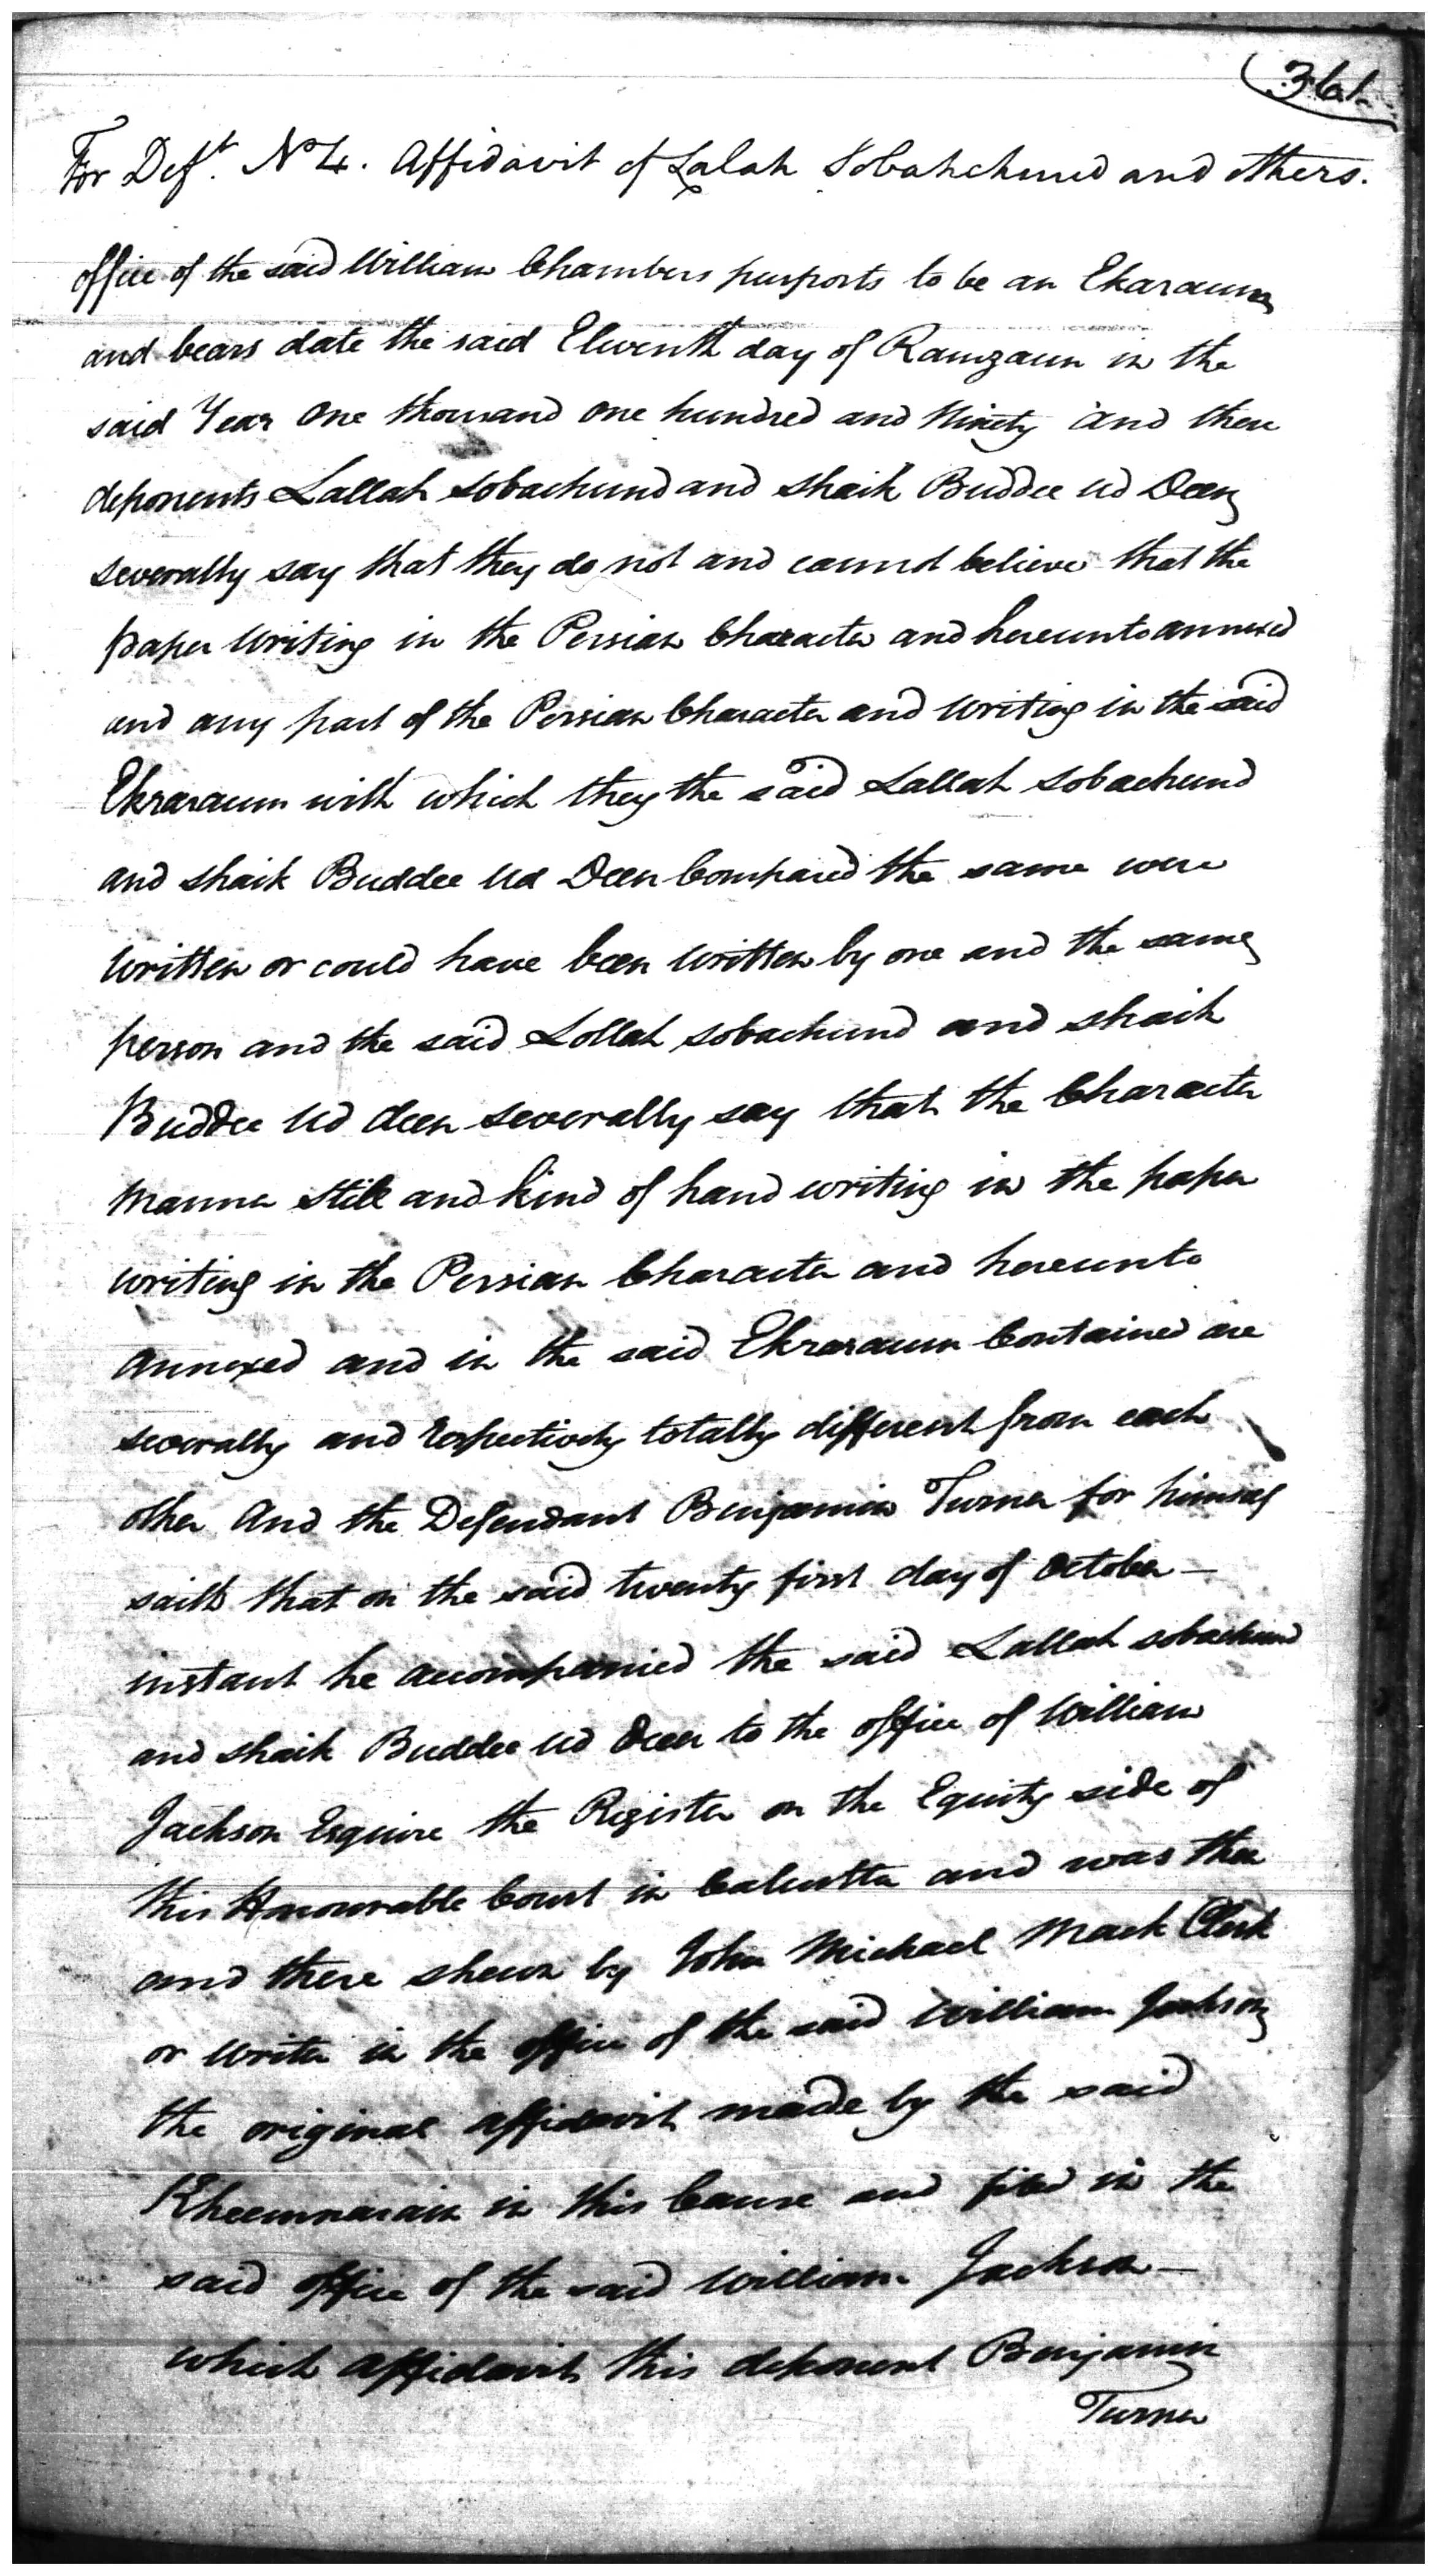 361.
For Deft. No 4. Affidavit of Lalah Sobahchund and others.
office of the said William Chambers purports to be an Ekaraum
and bears date the said Eleventh day of Ramzaun in the
said Year One thousand one hundred and Ninety And these
deponents Lallah Sobachund and Shaik Buddee ud Deen
severally say that they do not and cannot believe that the
paper writing in the Persian Character and hereunto annexed
and any part of the Persian Character and writing in the said
Ekraraum with which they the said Lallah Sobachund
and Shaik Buddee ud Deen Compared the same were
written or could have been written by one and the same
person and the said Lollah Sobachund and Shaik
Buddee ud deen severally say that the Character
Manner Stile and kind of hand writing in the paper
writing in the Persian Character and hereunto
annexed and in the said Ekraraum Contained are
severally and respectively totally different from each
other And the Defendant Benjamin Turner for himself
saith that on the said twenty first day of October —
instant he accompanied the said Lallah Sobachund
and Shaik Buddee ud Deen to the office of William
Jackson Esquire the Register on the Equity side of
this Honourable Court in Calcutta and was then
and there shewn by John Michael Mack Clerk
or writer in the office of the said William Jackson
the original affidavit made by the said
Kheemnarain in this Cause and filed in the
said office of the said William Jackson —
which affidavit this deponent Benjamin
Turner